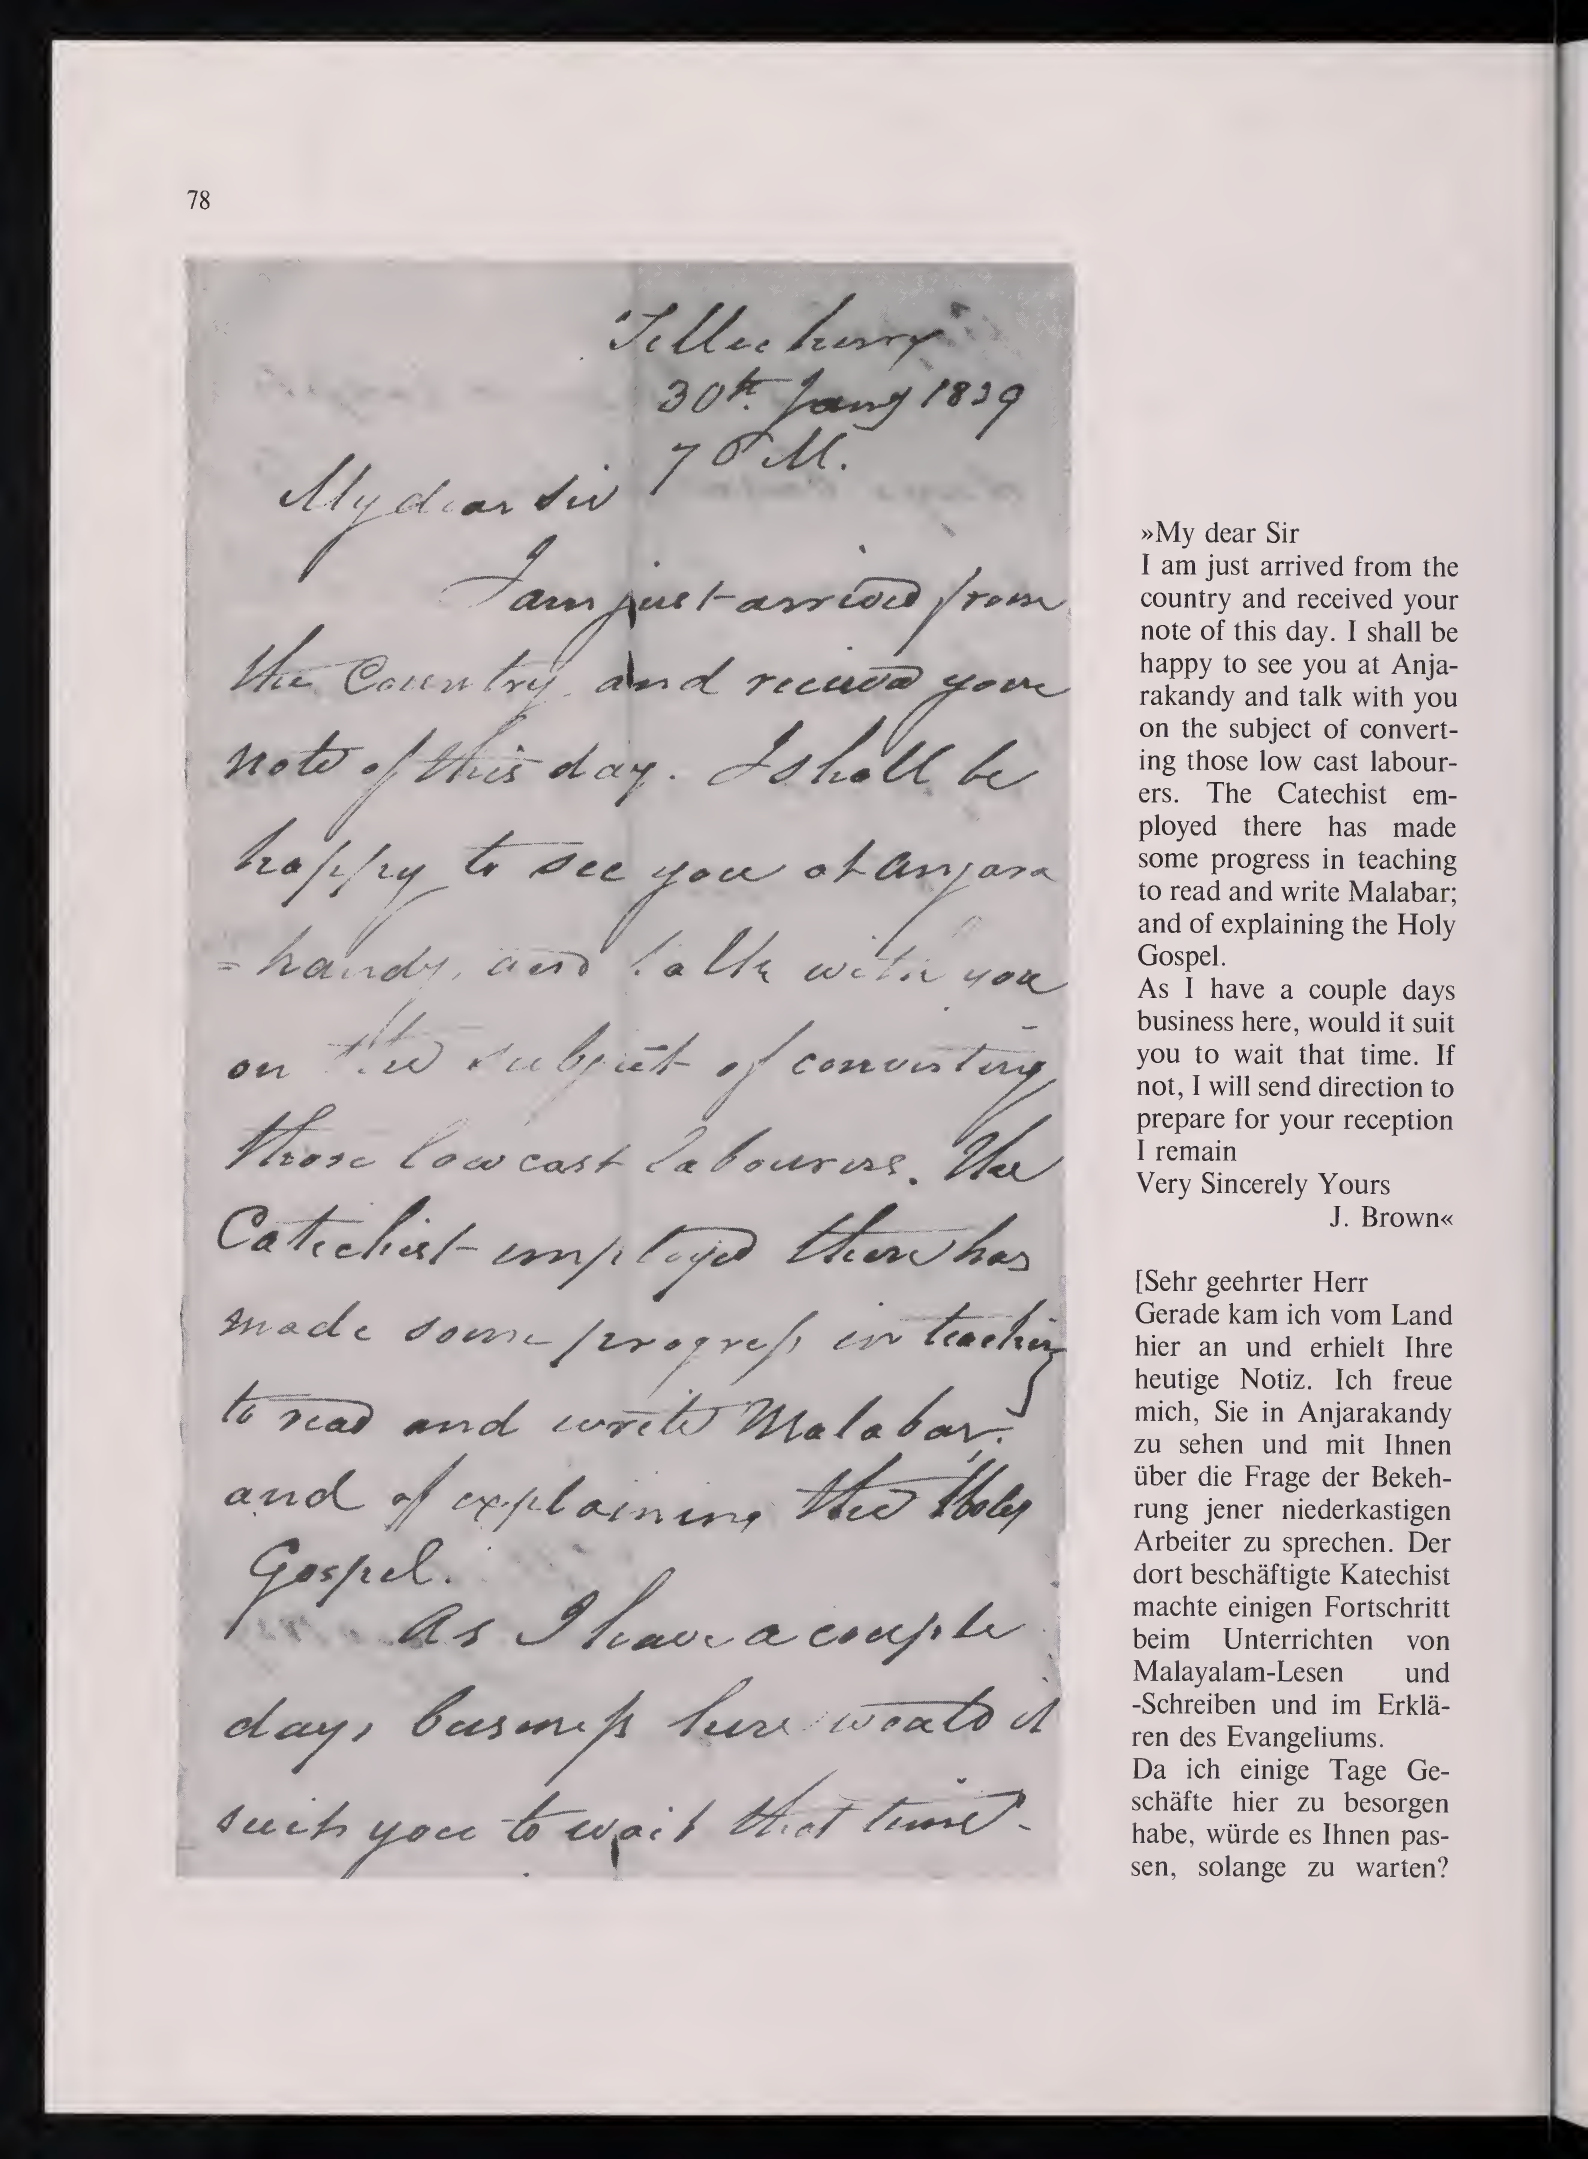 78
Tellicherry
30th. Jany 1839
7 P M.
My dear Sir
I am just arrived from
the Country, and received your
note of this day. I shall be
happy to see you at Anjara
=kandy, and talk with you
on the subject of converting
those low cast labourers. The
Catechist employed there has
made some progress in teaching
to read and write Malabar;
and of explaining the Holy
Gospel.
As I have a couple
days business here would it
suit you to wait that time.
»My dear Sir
I am just arrived from the
country and received your
note of this day. I shall be
happy to see you at Anja-
rakandy and talk with you
on the subject of convert-
ing those low cast labour-
ers. The Catechist em-
ployed there has made
some progress in teaching
to read and write Malabar;
and of explaining the Holy
Gospel.
As I have a couple days
business here, would it suit
you to wait that time. If
not, I will send direction to
prepare for your reception
I remain
Very Sincerely Yours
J. Brown«
[Sehr geehrter Herr
Gerade kam ich vom Land
hier an und erhielt Ihre
heutige Notiz. Ich freue
mich, Sie in Anjarakandy
zu sehen und mit Ihnen
über die Frage der Bekeh-
rung jener niederkastigen
Arbeiter zu sprechen. Der
dort beschäftigte Katechist
machte einigen Fortschritt
beim Unterrichten von
Malayalam-Lesen und
-Schreiben und im Erklä-
ren des Evangeliums.
Da ich einige Tage Ge-
schäfte hier zu besorgen
habe, würde es Ihnen pas-
sen, solange zu warten?